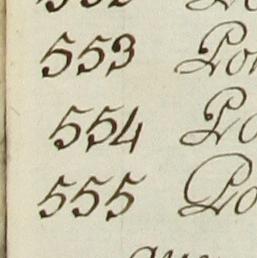 553 Po
554 Po
555 Po